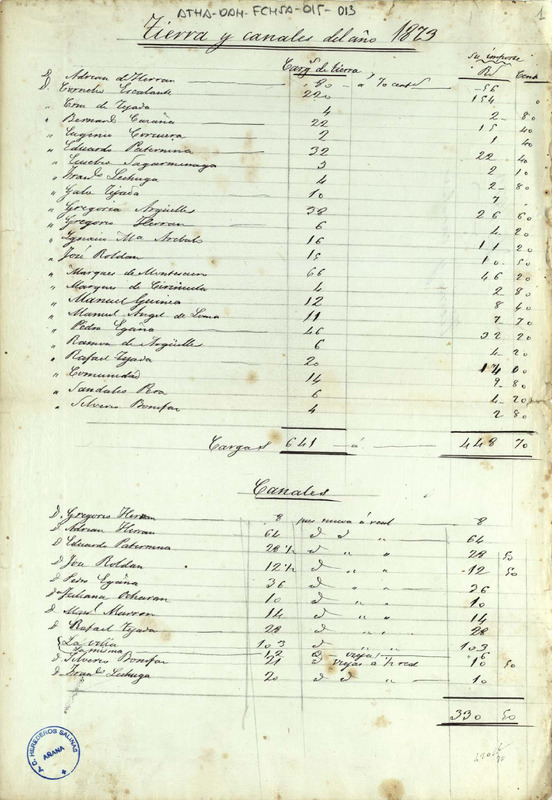 ATHA-DAH-FCHSA-015-013
1
Tierra y canales del año 1873
Cargs de tierra, su importe
Rs Cents
D. Adrian de Herran 80 a 70 cents 56
D. Cornelio Escalante 220 154 "
" Eom. de Tejada 4 2 80
" Bernardo Caraña 22 15 40
" Eugenio Corcuera 2 1 40
" Eduardo Paternina 32 22 40
" Eusebio Sagarminaga 3 2 10
" Franco Lechuga 4 2 80
" Galo Tejada 10 7
" Gregoria Argüelles 38 26 60
" Gregorio Herran 6 4 20
" Ygnacio Ma Arbulo 16 11 20
" José Roldan 15 10 50
" Marques de Montesacro 66 46 20
" Marques de 4 2 80
" Manuel Guinea 12 8 40
" Manuel Angel de Luma 11 7 70
" Pedro Egaña 46 32 20
" Ramon de Argüelles 6 4 20
" Rafael Tejada 20 14 00
" Comunidad 14 9 80
" Sandalio Roa 6 4 20
" Silverio Bonifaz 4 2 80
Cargas 641 a 448 70
Canales
D. Gregorio Herran 8 pies nueva á real 8
D. Adrian Herran 64 d d " 64
D. Eduardo Paternina 28 1/2 d " " 28 50
D. José Roldan 12 1/2 d " " 12 50
D. Pedro Egaña 36 d " " 36
D. Juliana Ocharan 10 d " " 10
D. Manl Marron 14 d " " 14
D. Rafael Tejada 28 d " " 28
La villa 103 d " " 103
La misma 12 d vieja 6
D. Silverio Bonifaz 21 d viejas á 1/2 real 10 50
D. Franco Lechuga 20 d d " 10
330 50
A.C. HEREDEROS SALINAS
AÑANA